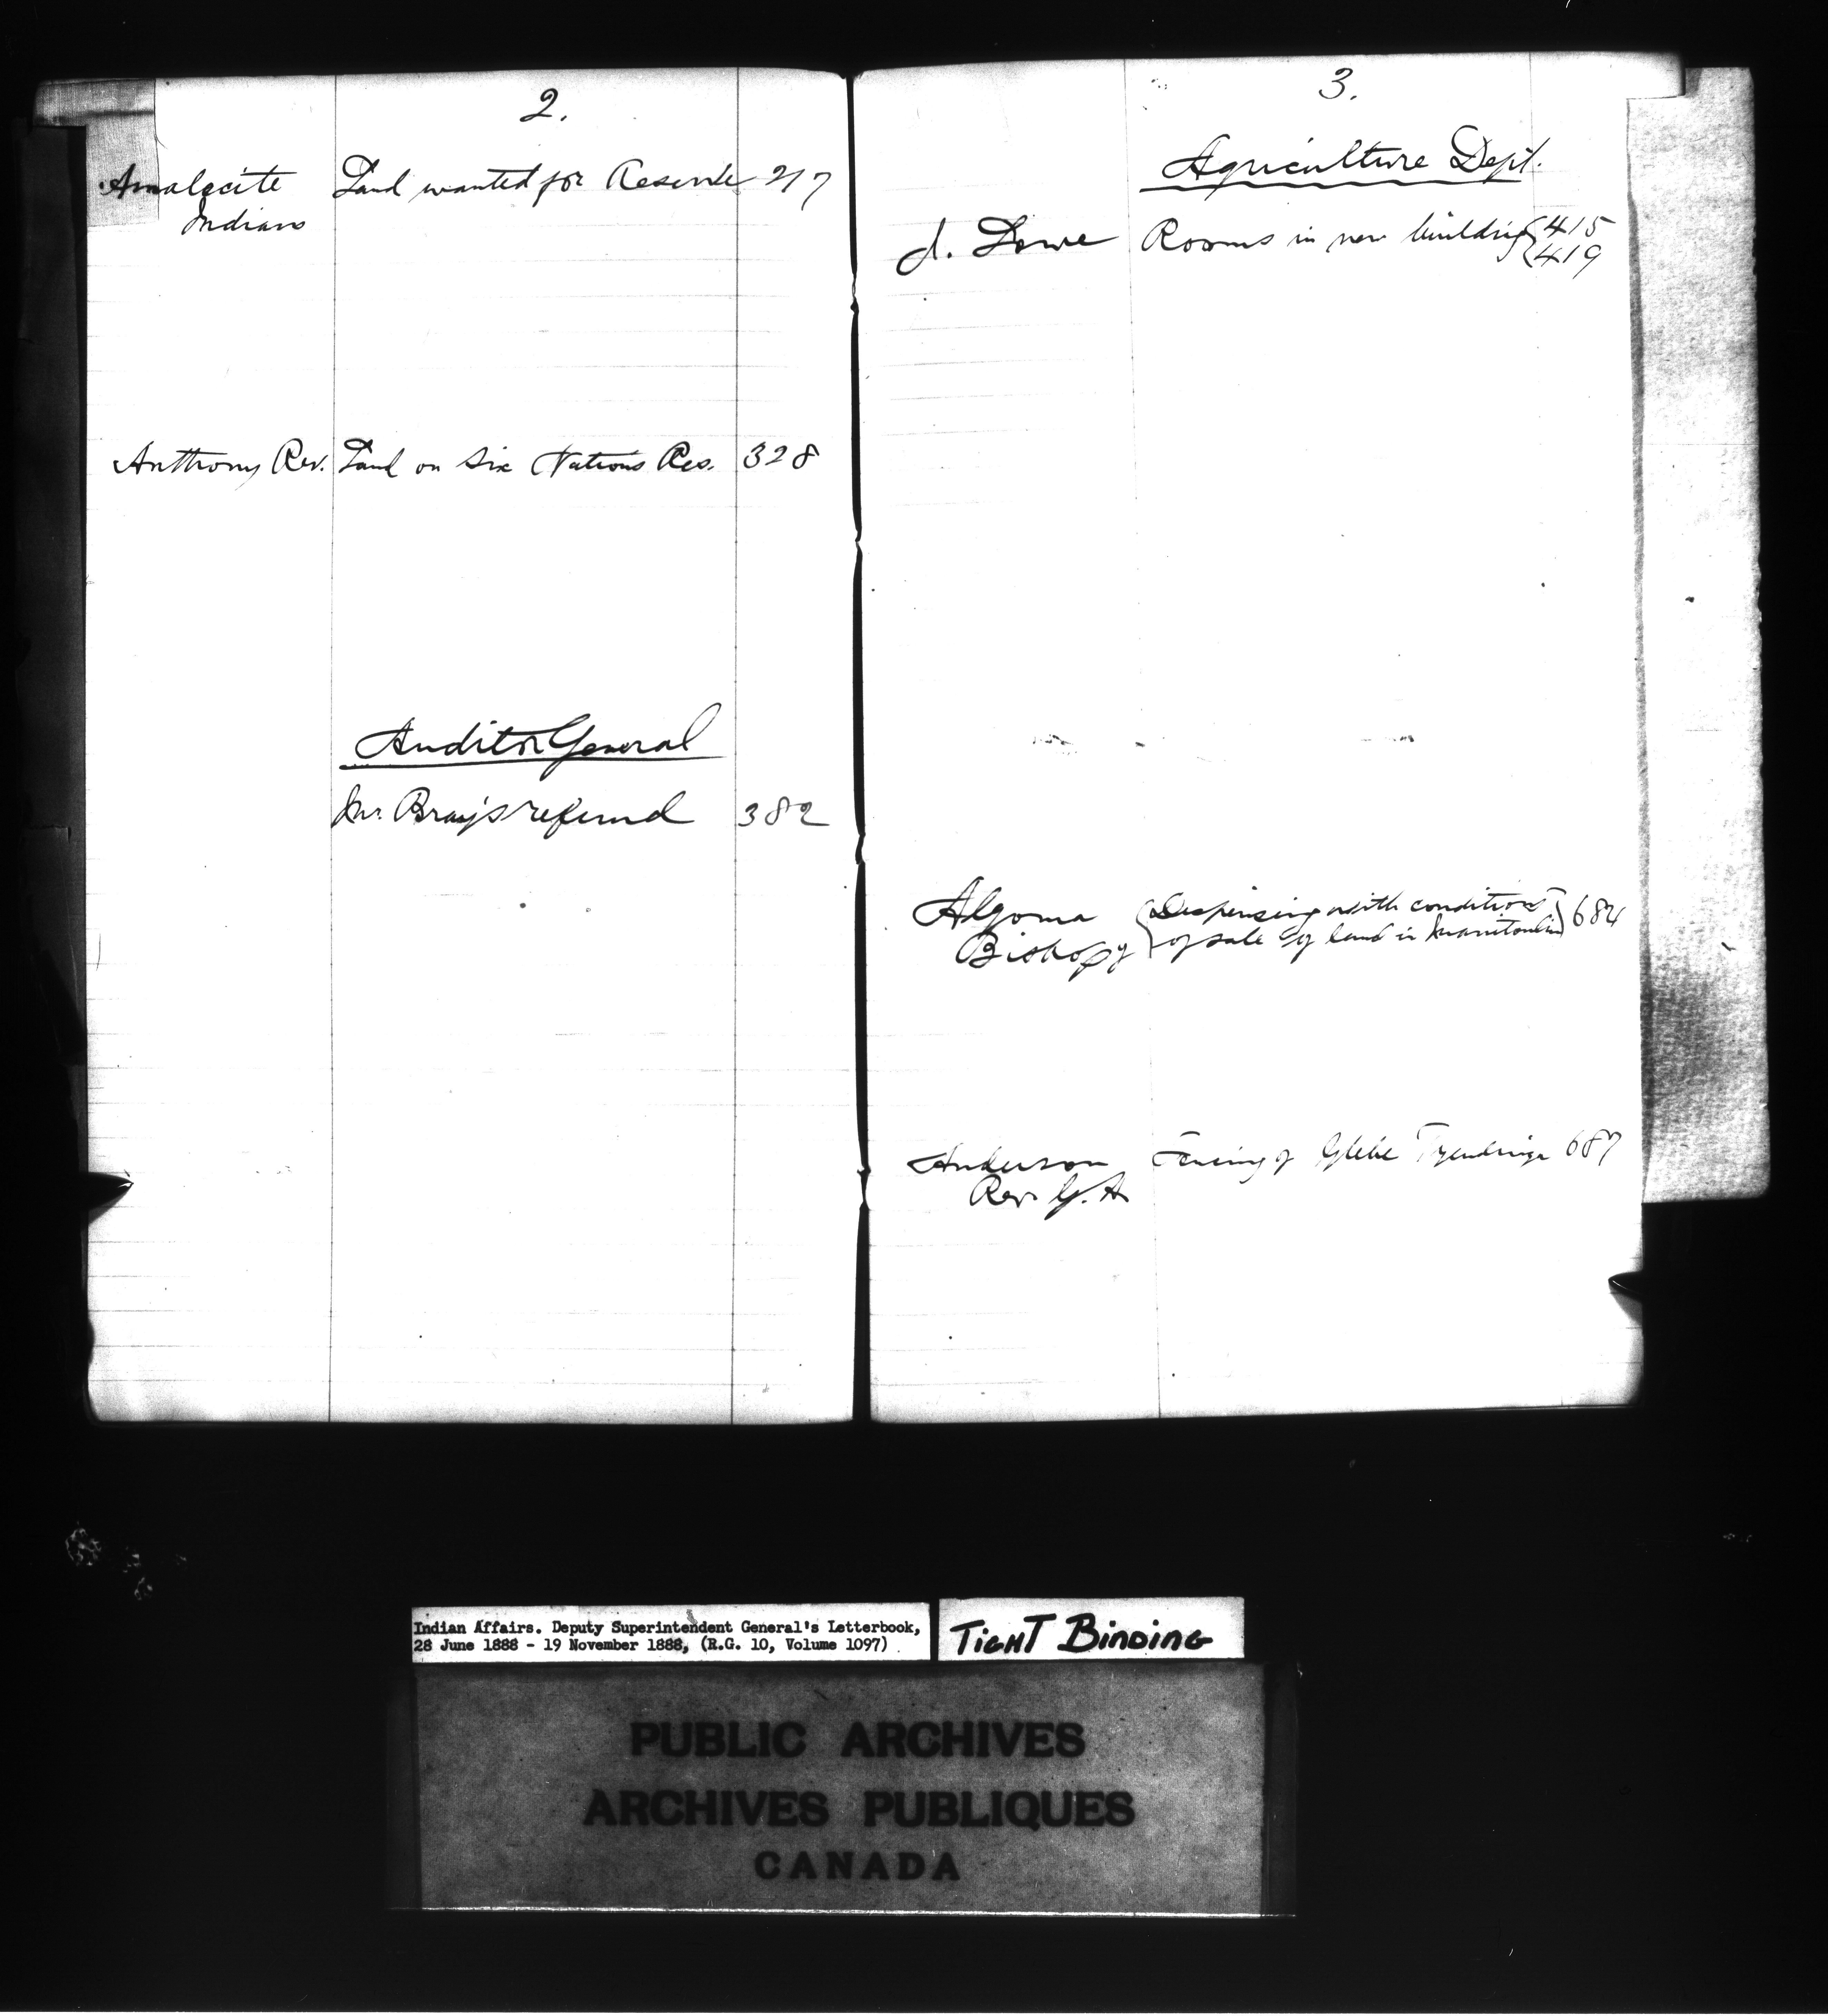 2.
Amalecite Land wanted for Reserve 217
Indians
Anthony Rev. Land on Six Nations Res. 328
Auditor General
Mr. Bray's refund 382
3.
Agriculture Dept.
J. Lowe Rooms in new building { 415
419
Algoma { Dispensing with conditions } 684
Bishop of of sale of land in Manitoulin
Anderson Fencing of Glebe Tyendinaga 687
Rev. G. A.
Indian Affairs. Deputy Superintendent General's Letterbook,
28 June 1888 - 19 November 1888, (R.G. 10, Volume 1097)
TIGHT BINDING
PUBLIC ARCHIVES
ARCHIVES PUBLIQUES
CANADA